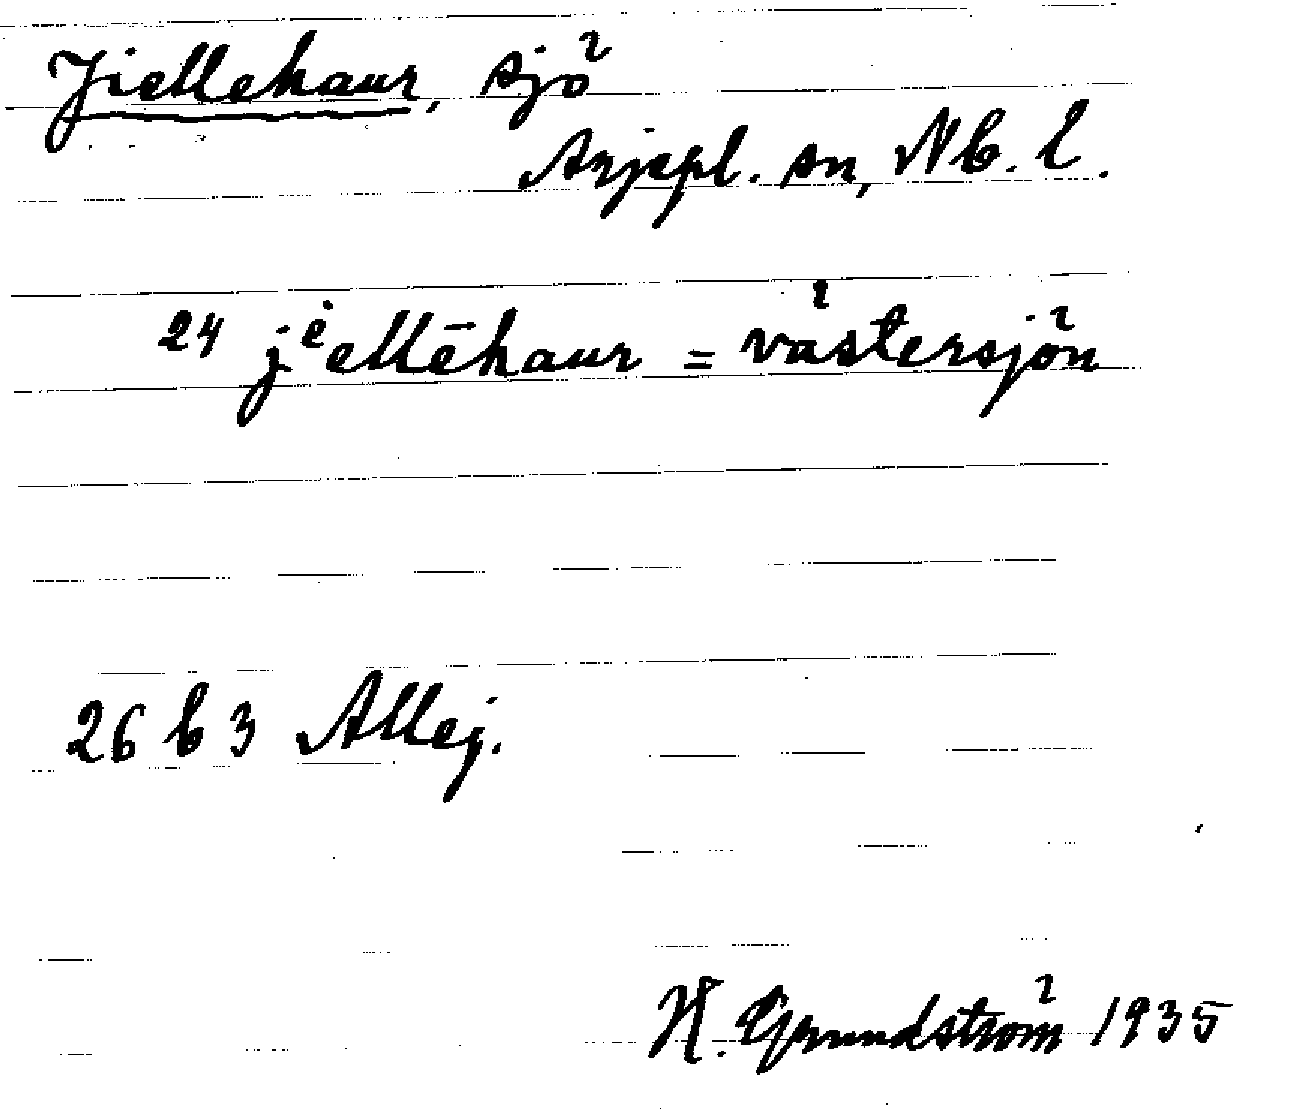 Jiellehaur, sjö
Arjepl. sn, Nb. l.
24 jėellēhaur = västersjön
26 b 3 Allej.
H. Grundström 1935